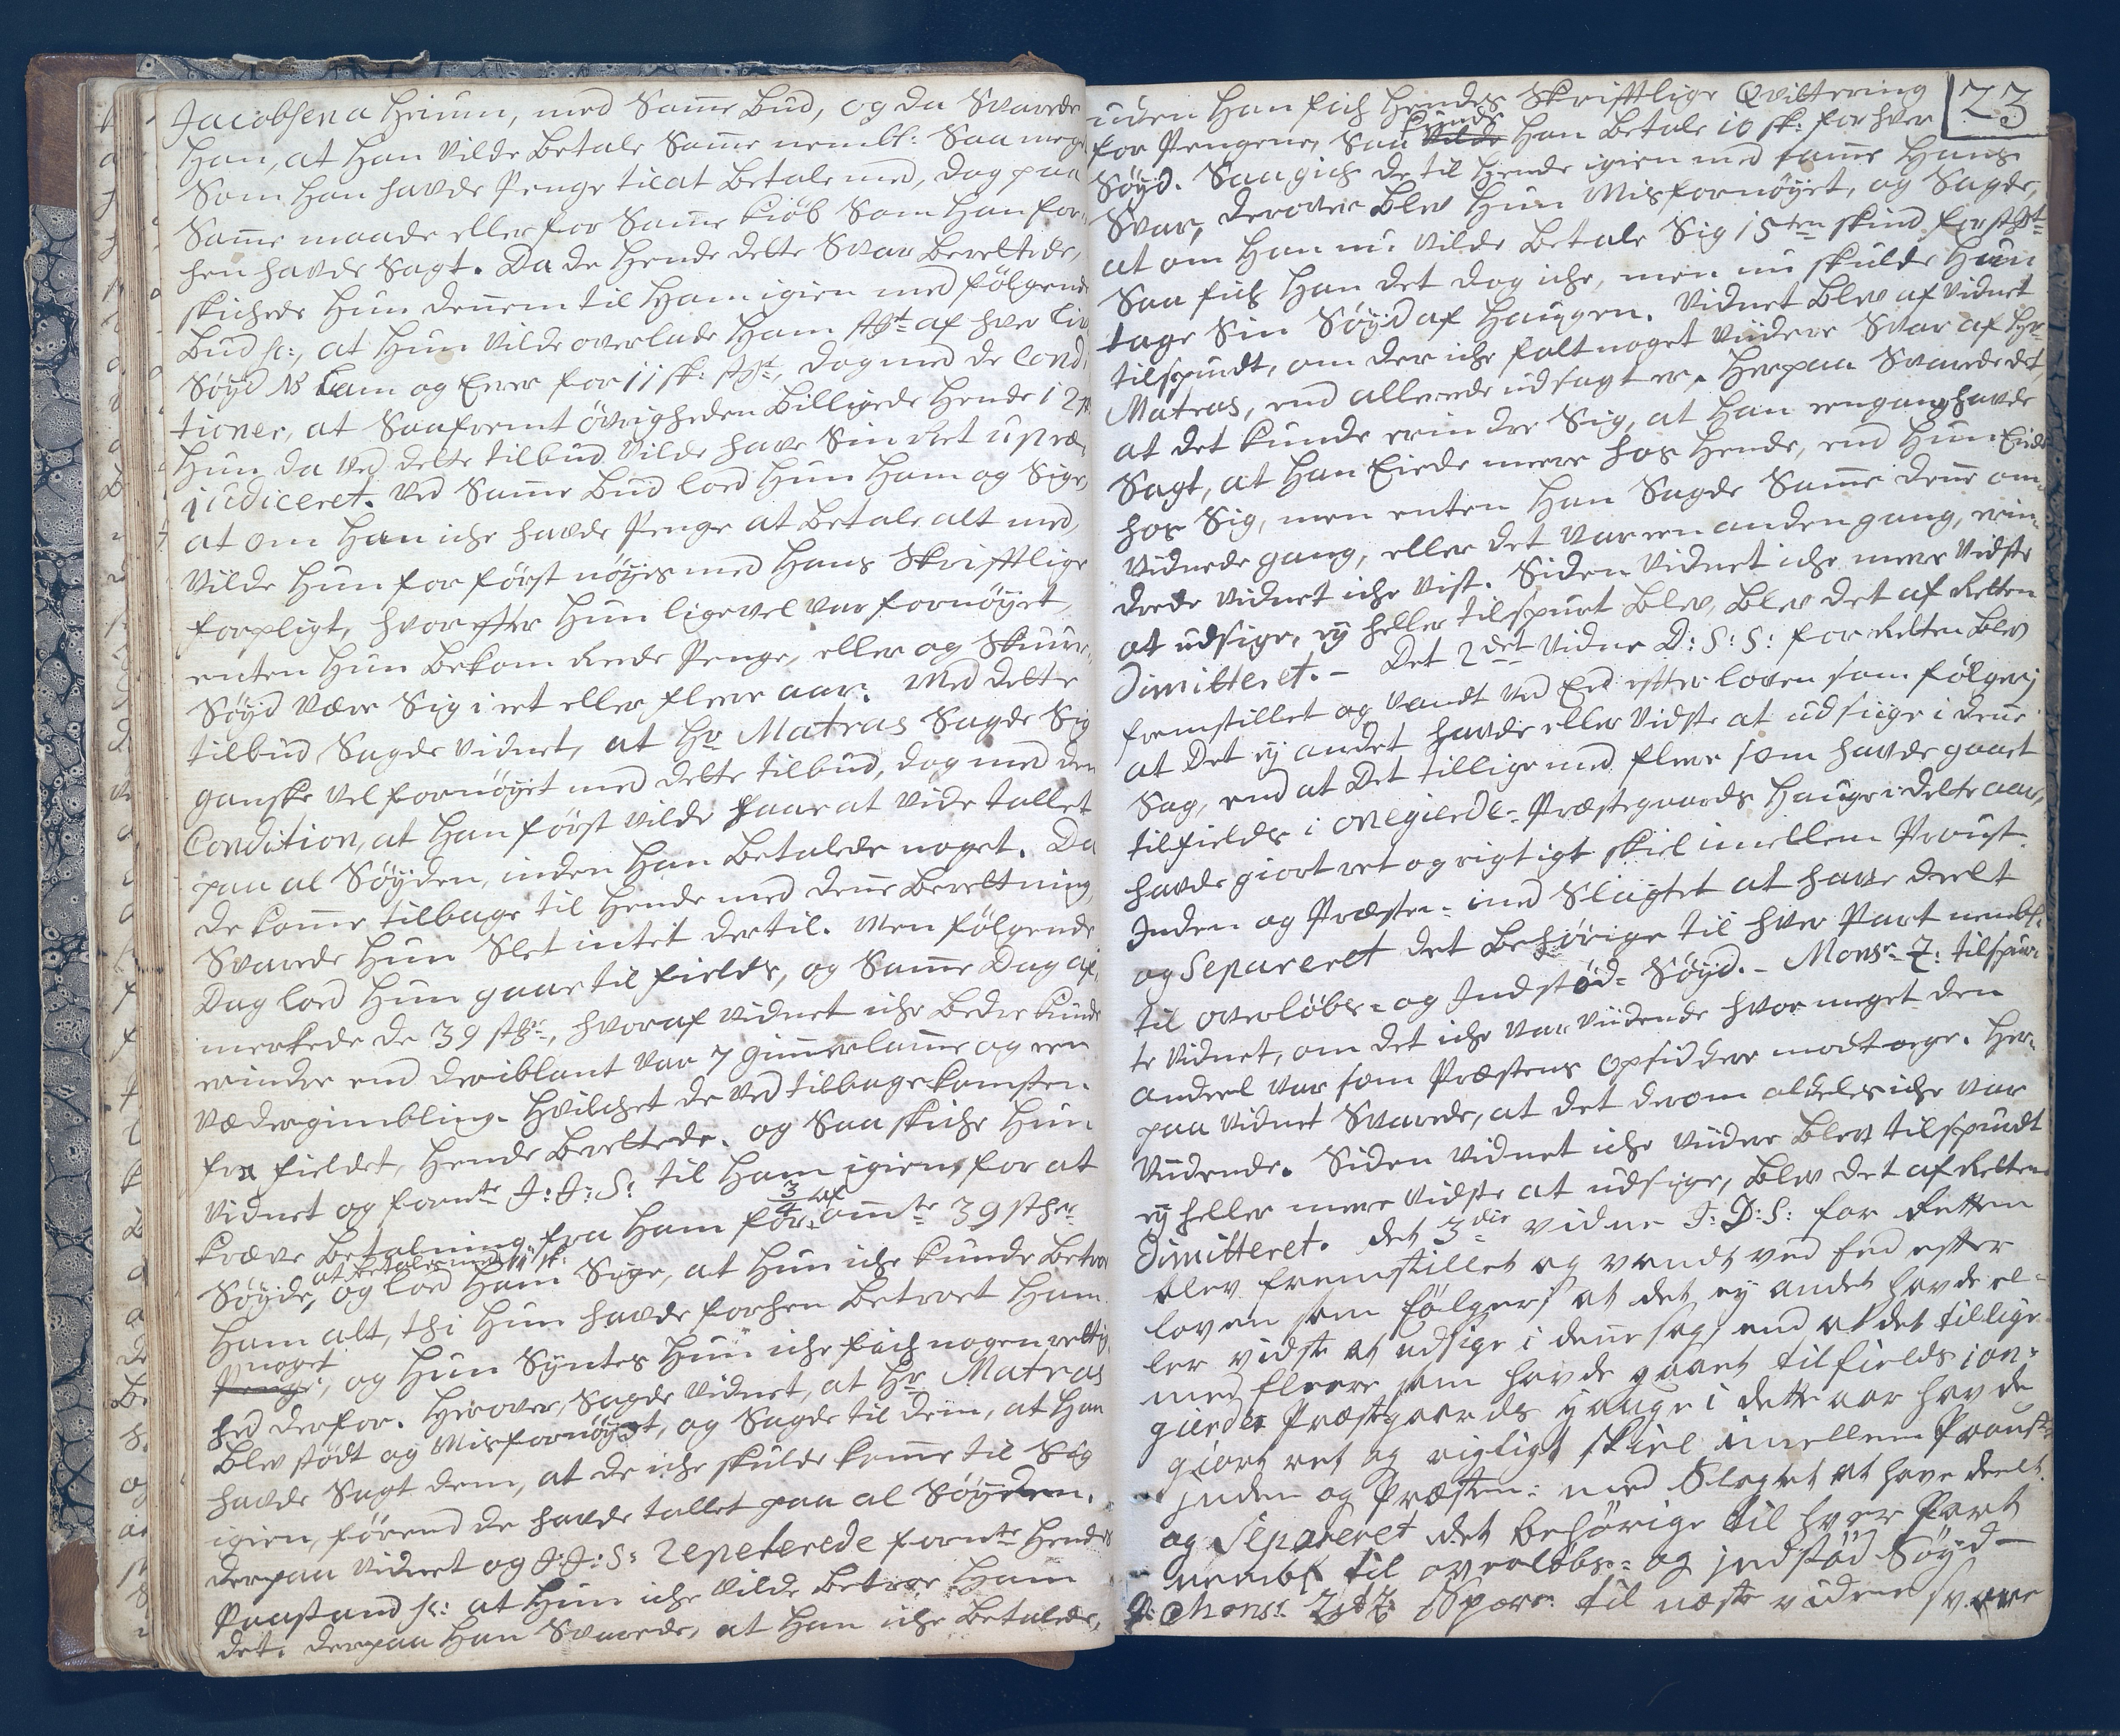 Jacobsen a Heium, med Samē Bud, og da Svarede
Han, at Han vilde Betale Samē nembl: Saa meget
Som Han havde Penge til at Betale med, dog paa
Samē maade eller for Samē Kiöb Som Han for-
hen havde Sagt. Da de Hende dette Svar Berettede,
skickede Hun dennem til Ham igien med følgende
Bud sc:, at Hun vilde overlade Ham st̄ht af hver
Søyd No Lam og Ever for 11 sk: st̄ht, dog med de Condi-
tioner, at Saafremt övrigheden Billigede Hende 12
Hun da ved dette tilbud vilde have Sin Ret upræ-
judiceret. ved Samē Bud loed Hun Ham og Sige,
at om Han iche havde Penge at Betale alt med,
vilde Hun for först nöyes med Hans Skrifftlige
forpligt, hvor efter Hun ligevel var fornöyet,
enten Hun Bekom Rede Penge, eller og
Söyd være Sig i et eller flere aar. Med dette
tilbud Sagde Vidnet, at Hr Matras Sagde Sig
ganske vel fornöyet med dette tilbud, dog med den
Condition, at Han först vilde faae at vide tallet
paa al Söyden, inden Han Betalede noget. Da
de komē tilbage til Hende med denē Berettning
Svarede Hun Slet intet dertil. Men følgende
Dag loed Hun gaae til fields, og Samē Dag af-
merkede de 39 st̄hr, hvoraf vidnet iche Bedre Kunde
erindre end deriblant var 7 gimerlamē og een
Vædergimbling. Hvilchet de ved tilbagekomsten
fra fieldet, Hende Berettede. og Saa skiche Hun
Vidnet og fornte J: J: S: til Ham igien, for at
3/4 af
kræve Betalning fra Ham for omte 39 sthr
at betale med 11 sk:
Söyde, og loed Ham Sige, at Hun iche kunde Betroe
Ham alt, thi Hun havde forhen Betroet Ham
noget
Penge, og Hun Syntes Hun iche fich nogen rettig-
hed derfor. Herover, Sagde Vidnet, at Hr Matras
Blev stödt og Misfornöyet, og Sagde til dem, at Han
havde Sagt dem, at de iche skulde komē til Sig
igien, förend de havde tallet paa al Söyden.
Derpaa Vidnet og J: J: S: repeterede fornte Hendes
Paastand sc: at Hun iche vilde Betroe Ham
det. Derpaa Han Svarede, at Han iche Betalede,
23
uden Han fich Hendes Skrifftlige Qvittering
Kunde
for Pengene, Saa vilde Han Betale 10 sk: for hver
Söyd. Saa gich de til Hende igien med samē Hans
Svar, derover Blev Hun Misfornöyet, og Sagde,
at om Han nu vilde Betale Sig 15ten skind for st̄ht
Saa fich Han det dog iche, men nu skulde Hun
tage Sin Söyd af Haugen. Vidnet Blev af Vidnet
tilspurdt, om der iche falt noget videre Svar af Hr
Matras, end allerede udsagt er. Herpaa Svarede det,
at det kunde erindre Sig, at Han eengang havde
Sagt, at Han Eiede mere hos Hende, end Hun Eiede
hos Sig, men enten Han Sagde Samē denē om-
vidnede gang, eller det var een anden gang, erin-
drede vidnet iche vist. Siden Vidnet iche mere vidste
at udsige, ey heller tilspurt Blev, Blev det af Retten
Dimitteret. - Det 2det Vidne D: S: S: for Retten Blev
fremstillet og vandt ved Eed efter loven som følger
at Det ey andet havde eller vidste at udsiige i denē
Sag, end at Det tillige med flere som havde gaaet
tilfields i onegierde- Præstegaards Hauge i dette aar,
havde giort ret og rigtigt skiel imellem Proust
Inden og Præsten: ved Slagtet at have deelt
og Separeret det Behörige til hver Part nembl:
til overlöbs- og Indstöd- Söyd. - Monsr Z: tilspur-
te Vidnet, om det iche var viidende hvor meget den
andeel var som Præstens opsiddere modtoge. Her-
paa Vidnet Svarede, at det derom aldeles iche var
Viidende. Siden Vidnet iche vidre Blev tilspurdt
ey heller mere vidste at udsige, Blev det af Retten
Dimitteret. det 3die vidne J: D: S: for Retten
blev fremstillet og vandt ved Eed efter
loven som følger, at det ey andet havde el-
ler vidste at udsige i denē sag, end at det tillige
med fleere som havde gaaet tilfields i on-
gierdes Præstegaards Hauge i dette aar havde
giort ret og rigtigt skiel imellem Proust
Inden og Præsten: med Slagtet at have deelt
og Separeret det behörige til hver Part
nembl til overlöbs- og indstöd Söyd -
Monsr Z til næste vidne svare